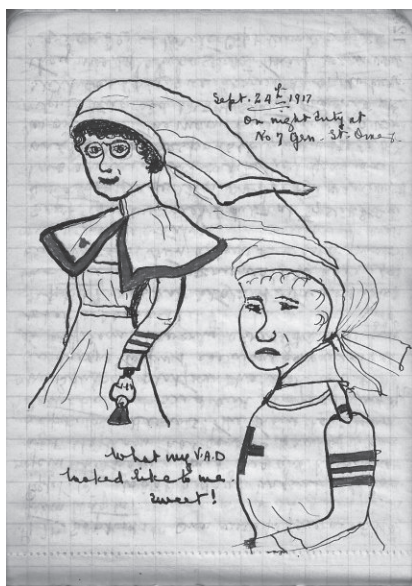 Sept. 24th 1917
On night duty at
No. 7 Gen. St. Omer
What my V.A.D
looked like to me.
Sweet!